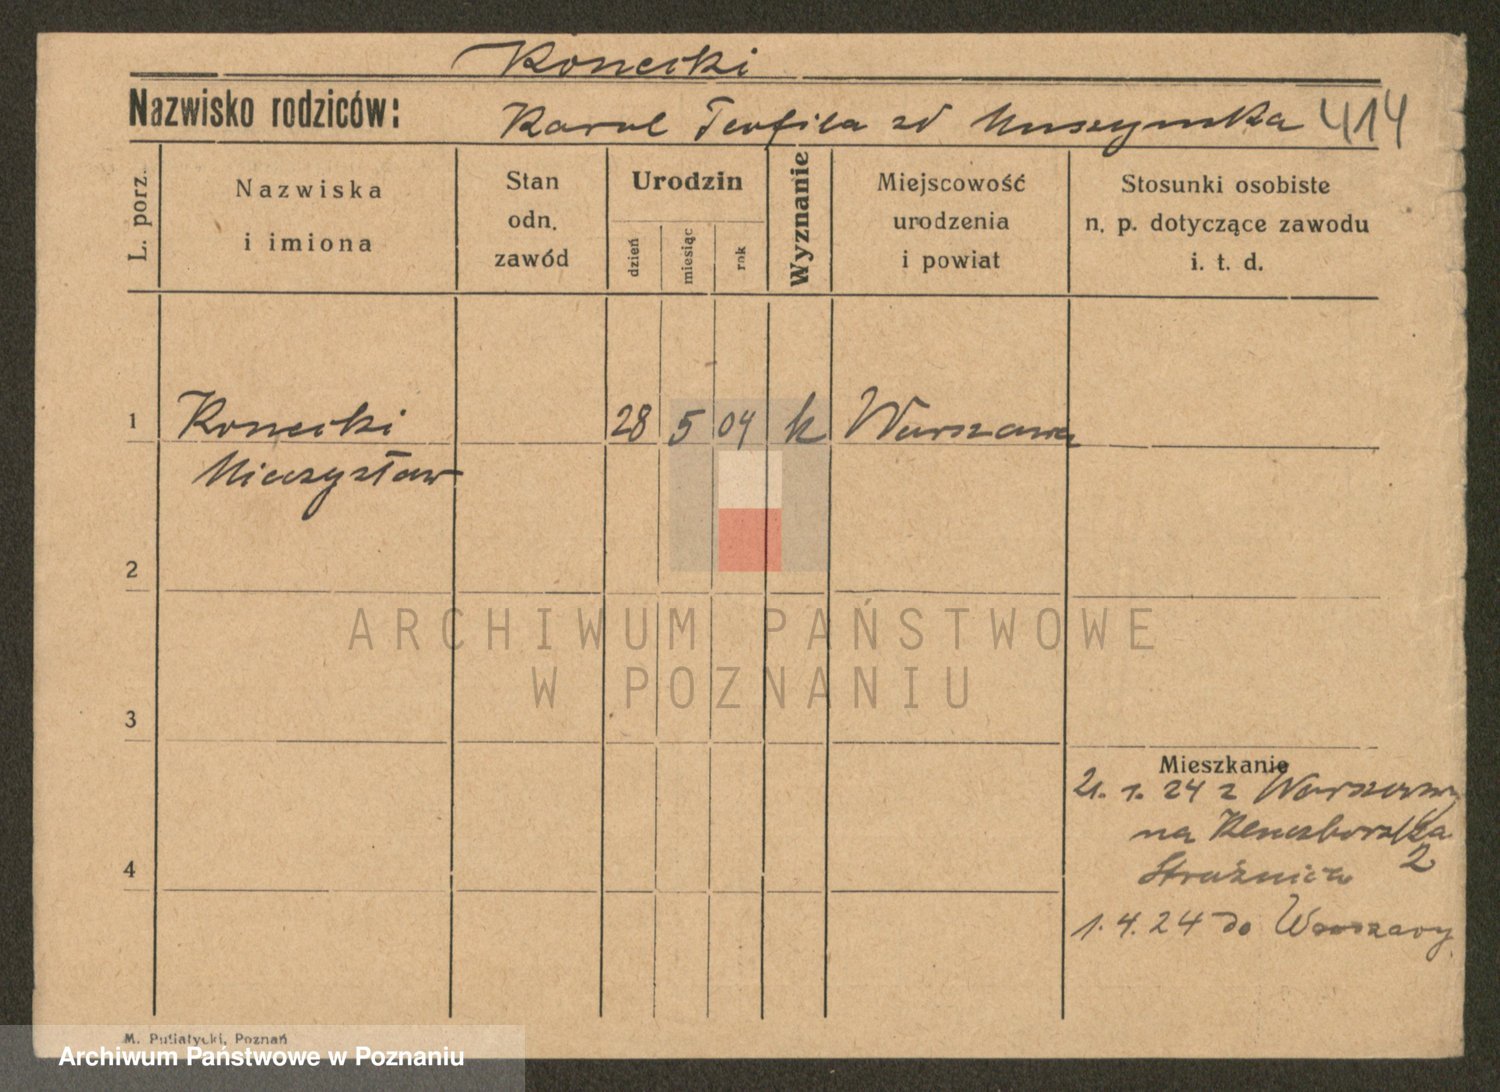 Konecki
Nazwisko rodziców: Karol Teofila zd Muszyńska 414
L. porz.
Nazwiska
i imiona
Stan
odn.
zawód
Urodzin
dzień
miesiąc
rok
Wyznanie
Miejscowość
urodzenia
i powiat
Stosunki osobiste
n. p. dotyczące zawodu
i. t. d.
1 Konecki 28 5 04 k Warszawa
Mieczysław
2
ARCHIWUM PAŃSTWOWE
W POZNANIU
3
Mieszkanie
21. 1. 24 z Warszawy
na
2
4
1. 4. 24 do Warszawy
M. Putiatycki, Poznań
Archiwum Państwowe w Poznaniu